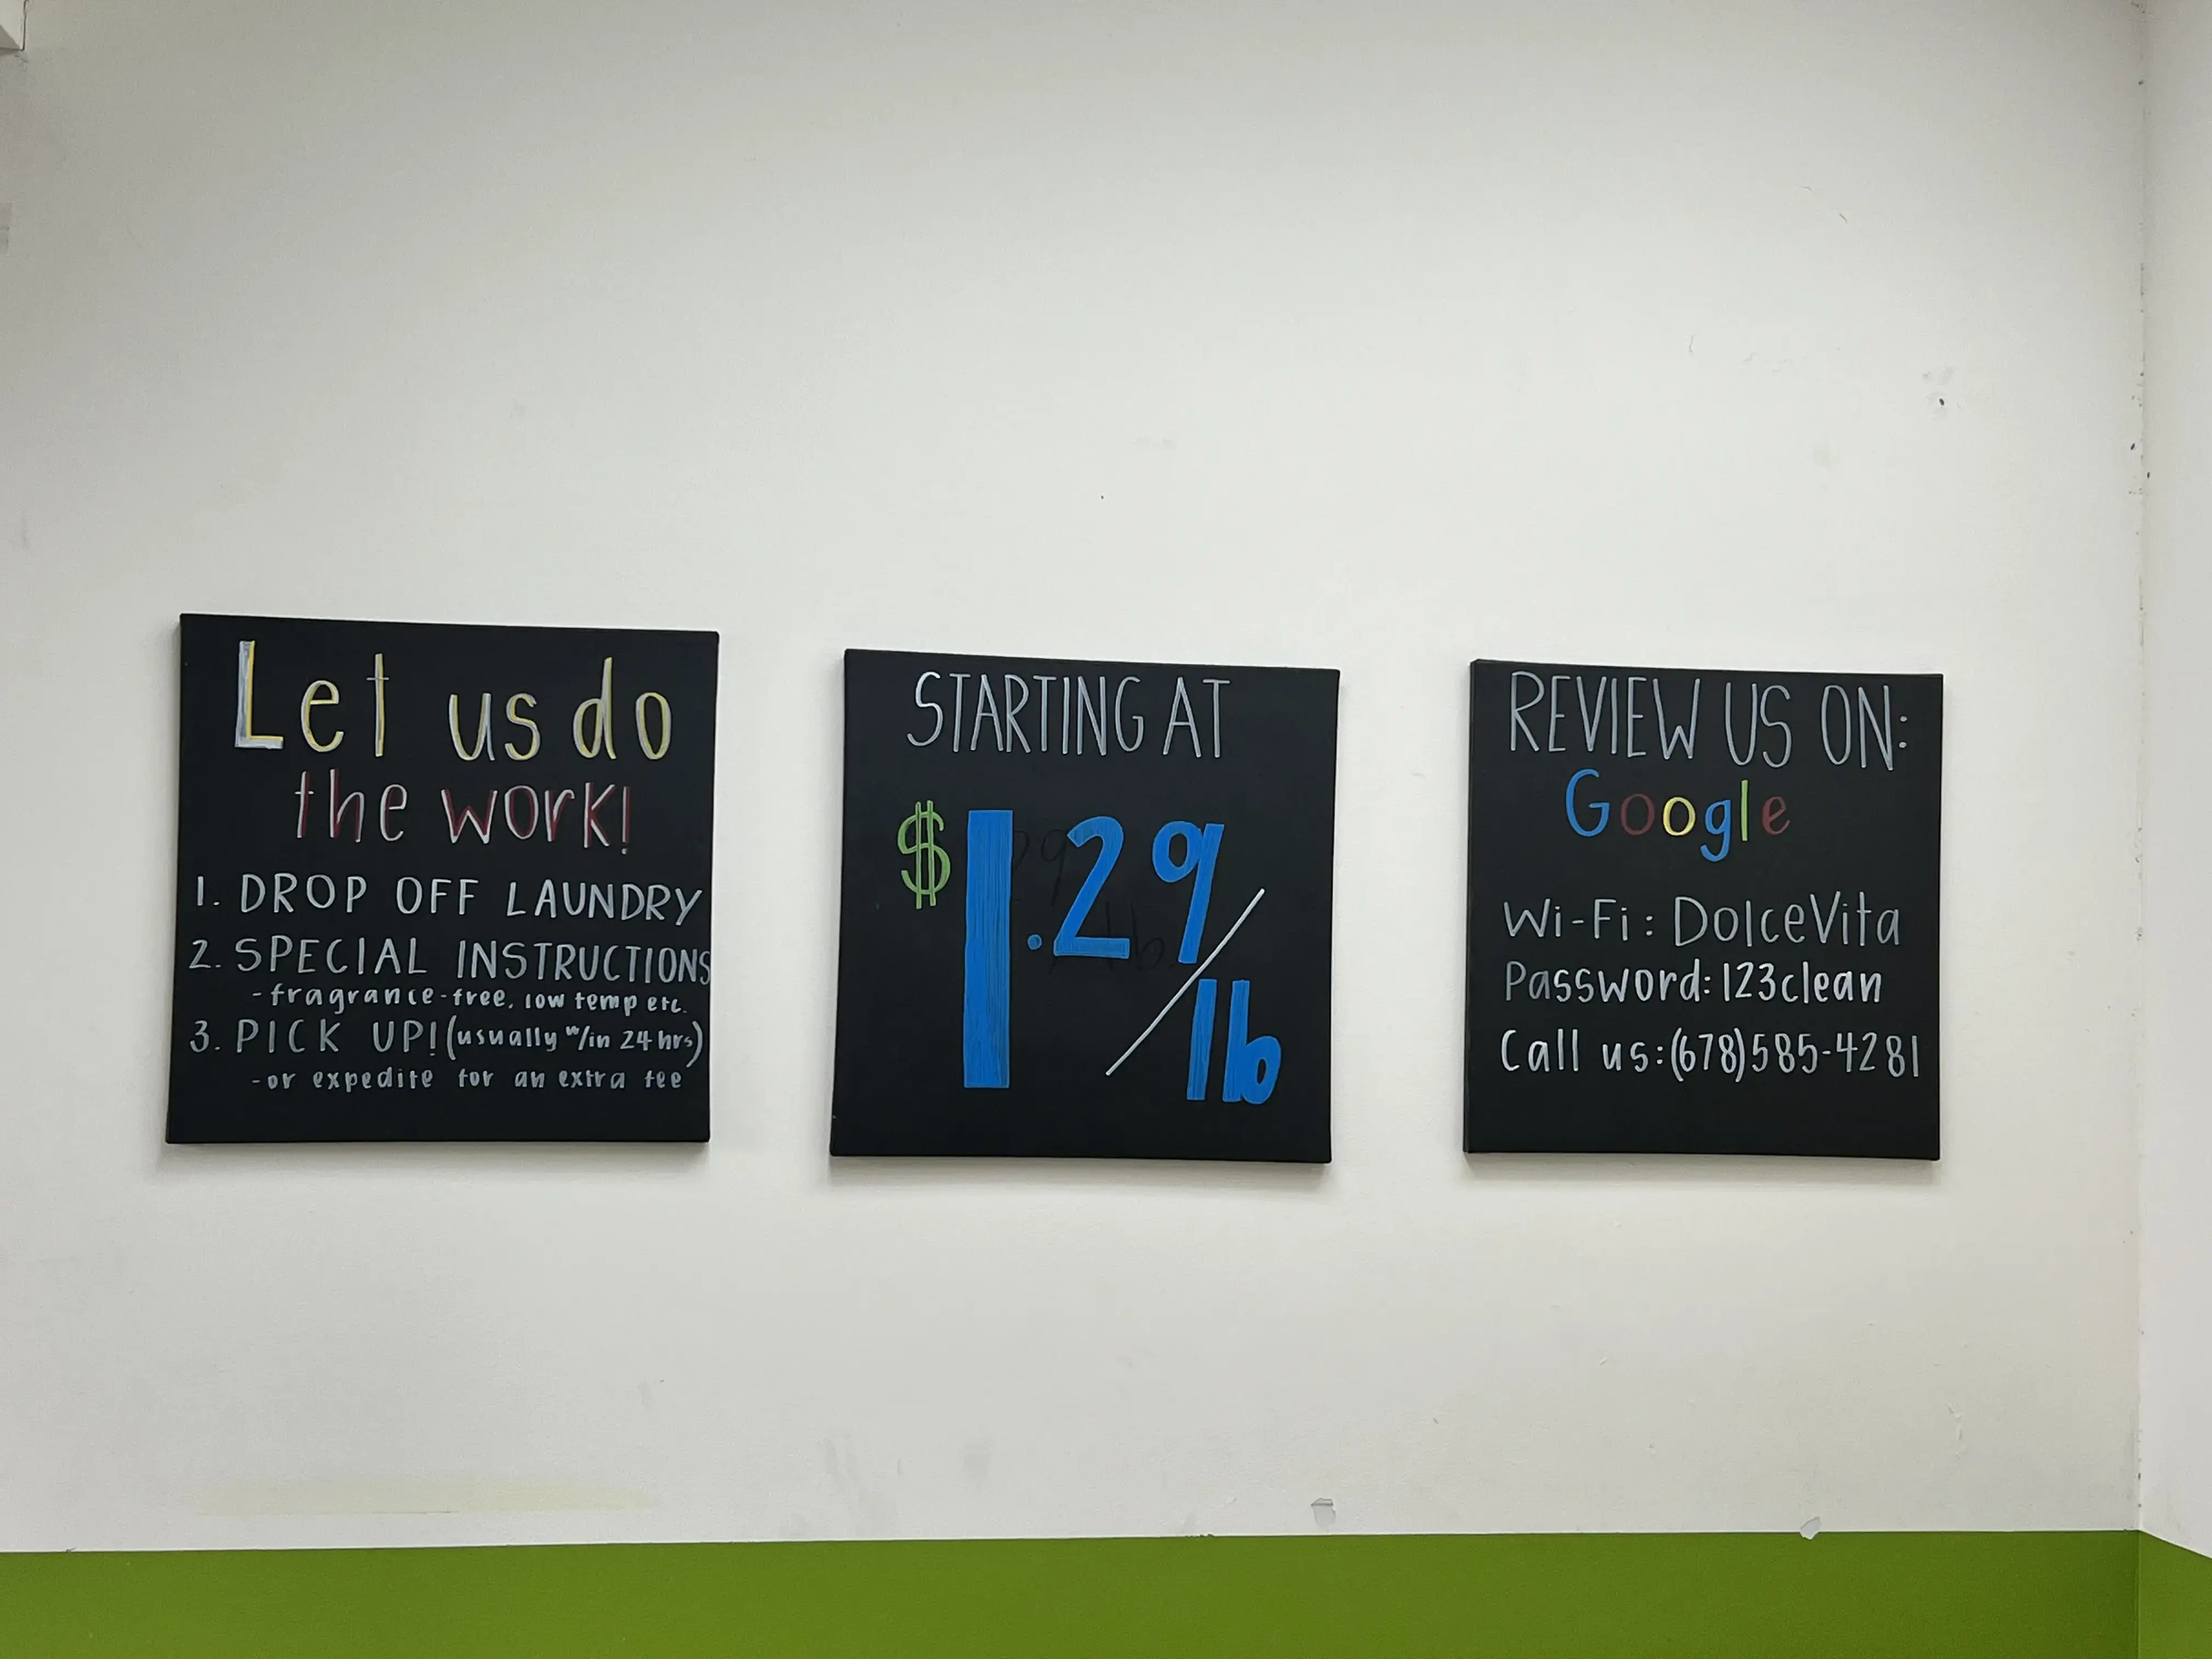 Let us do
the work!
1. DROP OFF LAUNDRY
2. SPECIAL INSTRUCTIONS
- fragrance-free, low temp etc.
3. PICK UP! (usually w/in 24 hrs)
- or expedite for an extra fee
STARTING AT
$1.29/lb
REVIEW US ON:
Google
Wi-Fi: DolceVita
Password: 123clean
Call us: (678)585-4281